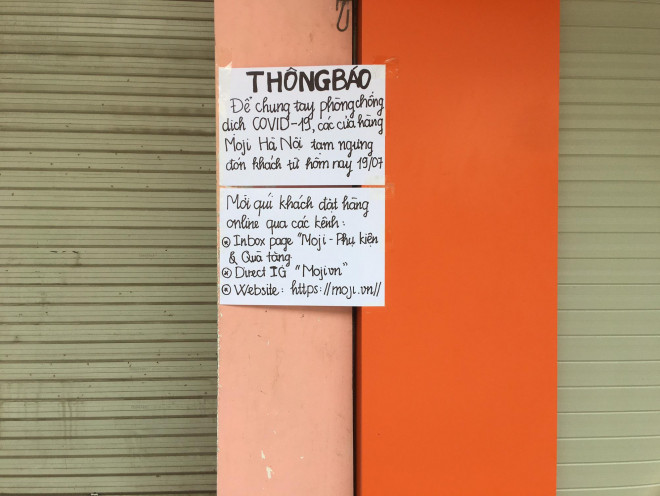 THÔNG BÁO
Để chung tay phòng chống
dịch COVID-19, các cửa hàng
Moji Hà Nội tạm ngưng
đón khách từ hôm nay 19/07
Mời quí khách đặt hàng
online qua các kênh:
Inbox page "Moji - Phụ kiện
& Quà tặng
Direct IG "Mojivn"
Website: https://moji.vn//